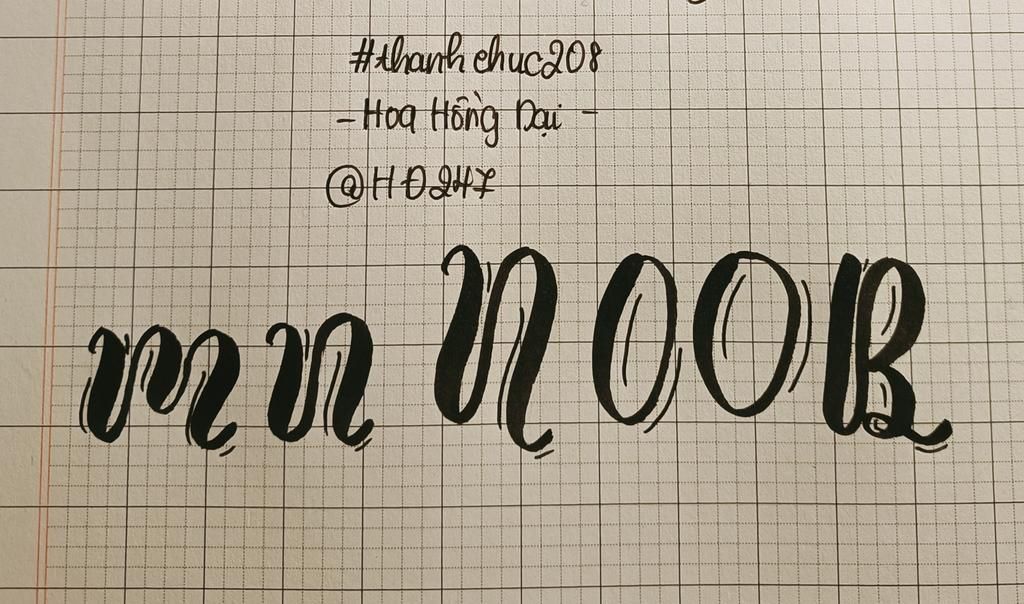 #thanhchuc208
- Hoa Hồng Dại -
@HĐ247
m n N O O B